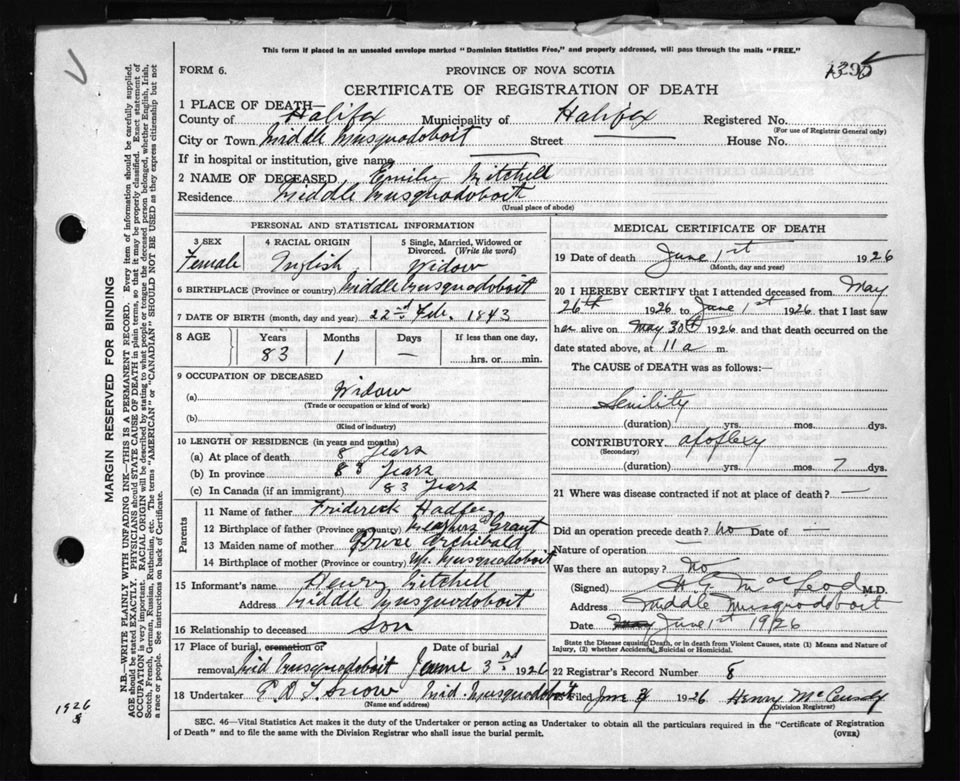 This form if placed in an unsealed envelope marked "Dominion Statistics Free," and properly addressed, will pass through the mails "FREE."
FORM 6.
PROVINCE OF NOVA SCOTIA
CERTIFICATE OF REGISTRATION OF DEATH
1 PLACE OF DEATH—
County of Halifax Municipality of Halifax Registered No.
(For use of Registrar General only)
City or Town Middle Musquodoboit Street House No.
If in hospital or institution, give name
2 NAME OF DECEASED Emily Mitchell
Residence Middle Musquodoboit
(Usual place of abode)
PERSONAL AND STATISTICAL INFORMATION
3 SEX 4 RACIAL ORIGIN 5 Single, Married, Widowed or Divorced. (Write the word)
Female English Widow
6 BIRTHPLACE (Province or country) Middle Musquodoboit
7 DATE OF BIRTH (month, day and year) 22nd Feb. 1843
8 AGE Years Months Days If less than one day,
83 1 — hrs. or min.
9 OCCUPATION OF DECEASED
(a) Widow
(Trade or occupation or kind of work)
(b)
(Kind of industry)
10 LENGTH OF RESIDENCE (in years and months)
(a) At place of death 8 Years
(b) In province 83 Years
(c) In Canada (if an immigrant) 83 Years
Parents
11 Name of father Frederick Hadley
12 Birthplace of father (Province or country) Grant
13 Maiden name of mother Archibald
14 Birthplace of mother (Province or country) Up. Musquodoboit
15 Informant's name Henry Mitchell
Address Middle Musquodoboit
16 Relationship to deceased Son
17 Place of burial, cremation or removal Mid Musquodoboit Date of burial June 3rd 1926
18 Undertaker Snow Mid. Musquodoboit
(Name and address)
MEDICAL CERTIFICATE OF DEATH
19 Date of death June 1st 1926
(Month, day and year)
20 I HEREBY CERTIFY that I attended deceased from May
26th 1926 to June 1st 1926 that I last saw
her alive on May 30th 1926 and that death occurred on
date stated above, at 11 a m.
The CAUSE of DEATH was as follows:—
Senility
(duration) yrs. mos. dys.
CONTRIBUTORY apoplexy
(Secondary)
(duration) yrs. mos. 7 dys.
21 Where was disease contracted if not at place of death? —
Did an operation precede death? no Date of —
Nature of operation —
Was there an autopsy? No
(Signed) McLeod M.D.
Address Middle Musquodoboit
Date June 1st 1926
State the Disease causing Death, or in death from Violent Causes, state (1) Means and Nature of Injury, (2) whether Accidental, Suicidal or Homicidal.
22 Registrar's Record Number 8
Filed June 1926 Henry McCurdy
(Division Registrar)
SEC. 46—Vital Statistics Act makes it the duty of the Undertaker or person acting as Undertaker to obtain all the particulars required in the "Certificate of Registration
of Death" and to file the same with the Division Registrar who shall issue the burial permit.
(OVER)
MARGIN RESERVED FOR BINDING
N.B.—WRITE PLAINLY WITH UNFADING INK—THIS IS A PERMANENT RECORD. Every item of information should be carefully supplied.
AGE should be stated EXACTLY. PHYSICIANS should STATE CAUSE OF DEATH in plain terms, so that it may be properly classified. Exact statement of
OCCUPATION is very important. RACIAL ORIGIN will be described by stating to what people or tongue the deceased person belonged, whether English, Irish,
Scotch, French, German, Russian, Ruthenian, etc. The terms "AMERICAN" or "CANADIAN" SHOULD NOT BE USED as they express citizenship but not
a race or people. See instructions on back of Certificate.
1926
8